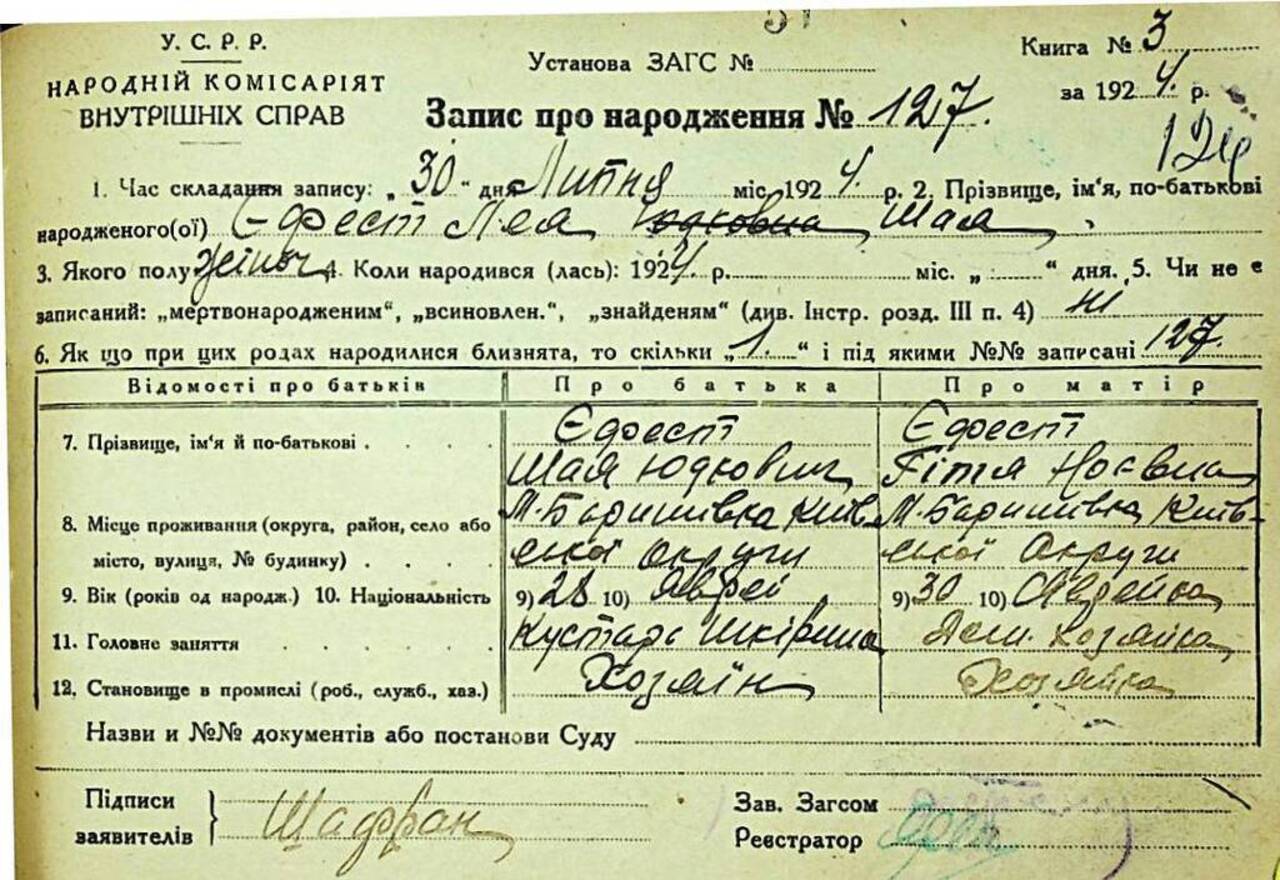 У. С. Р. Р.
НАРОДНІЙ КОМІСАРІЯТ
ВНУТРІШНІХ СПРАВ
Установа ЗАГС №
Книга № 3
за 1924. р.
Запис про народження № 127.
124
1. Час складання запису: „ 30 “ дня Липня міс. 1924. р. 2. Прізвище, ім'я, по-батькові
народженого(ої) Єфест Лея Юдковна Шая
3. Якого полу жіноч 4. Коли народився (лась): 1924 р. міс. „ “ дня. 5. Чи не є
записаний: „мертвонародженим“, „всиновлен.“, „знайденям“ (див. Інстр. розд. III п. 4) ні
6. Як що при цих родах народилися близнята, то скільки „ 1. “ і під якими №№ записані 127.
Відомості про батьків Про батька Про матір
7. Прізвище, ім'я й по-батькові . . . . Єфест Єфест
Шая Юдкович Гітя Ноєвна
8. Місце проживання (округа, район, село або М. Баришівка Київ- М. Баришівка Київ-
місто, вулиця, № будинку) . . . . ської Округи ської Округи
9. Вік (років од народж.) 10. Національність 9) 28 10) Яврей 9) 30 10) Яврейка
11. Головне заняття . . . . . . Кустарь шкірник Дом. хозяйка
12. Становище в промислі (роб., служб., хаз.) Хозяїн Хозяйка
Назви и №№ документів або постанови Суду
Підписи
заявителів
Шафран
Зав. Загсом
Реєстратор